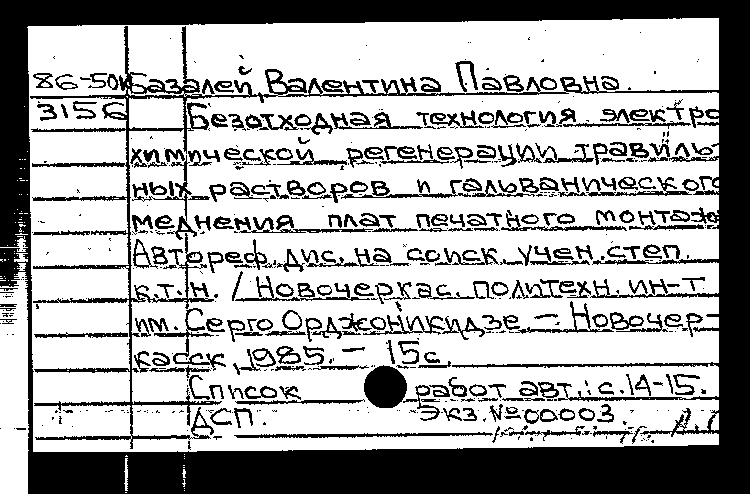 86-50к Базалей, Валентина Павловна.
3156 Безотходная технология электро
химической регенерации травиль-
ных растворов и гальванического
меднения плат печатного монтаж
Автореф. дис. на соиск. учен. степ.
к.т.н. / Новочеркас. политехн. ин-т
им. Серго Орджоникидзе. – Новочер-
касск, 1985. – 15с.
Список работ авт.: с.14-15.
ДСП. Экз. №00003.